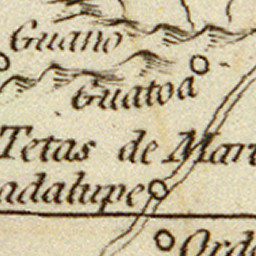 Guano
Guatoa
Tetas de Mart
adalupe
Orde